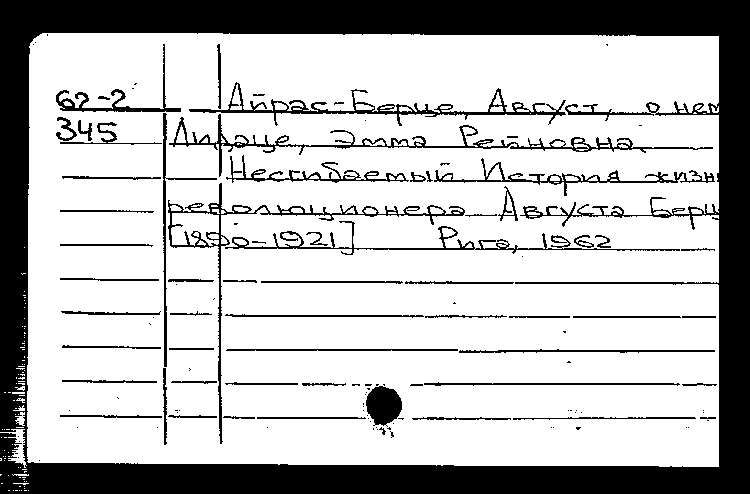 62-2 Айрас-Берце, Август, о нем
345 Лидаце, Эмма Рейновна.
Несгибаемый История жизн
революционера Августа Берц
[1890-1921] Рига, 1962